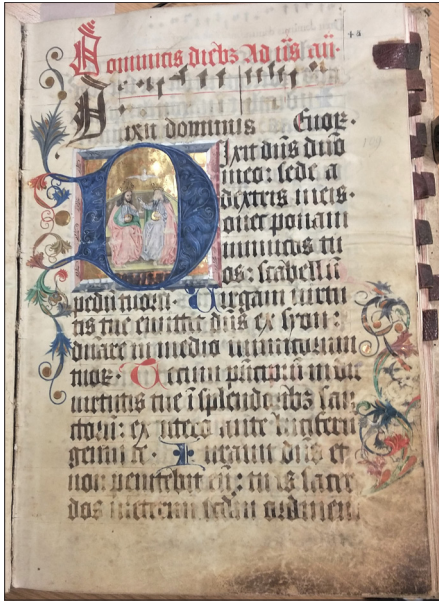 Dominicis dieb₃ Ad vs̄ an̄.
Dixit dominus Euoꝝ.
Dixit dn̄s dn̄o
meo: sede a
dextris meis.
Donec ponam
inimicos tu
os: scabellū
pedū tuoꝝ. Uirgam uirtu
tis tue emittꝫ dn̄s ex syon:
dn̄are in medio inimicorum
tuoꝝ. Tecum pn̄cipiū in die
uirtutis tue ī splendorib₃ san
ctorū: ex utero ante luciferū
genui te. Iurauit dn̄s et
non penitebit eū: tu es sacer
dos ineternū scdm̄ ordinem